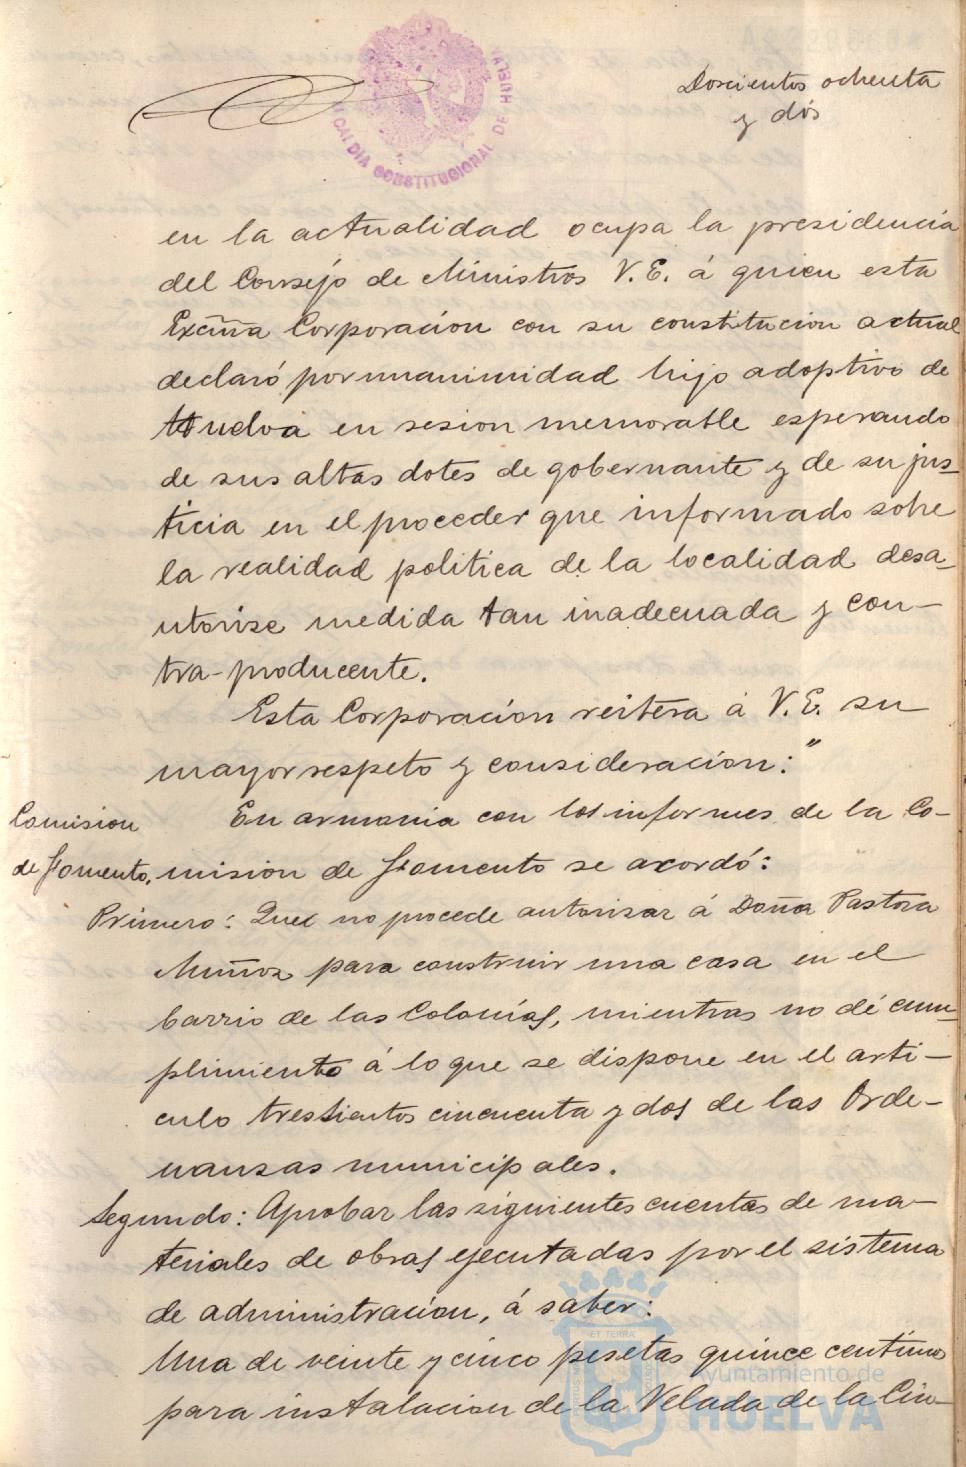 Doscientos ochenta
y dós
ALCALDIA CONSTITUCIONAL DE HUELVA
en la actualidad ocupa la presidencia
del Consejo de Ministros V.E. á quien esta
Excma Corporación con su constitucion actual
declaró por unanimidad hijo adoptivo de
Huelva en sesion memorable esperando
de sus altas dotes de gobernante y de su jus-
ticia en el proceder que informado sobre
la realidad politica de la localidad desa-
utorise medida tan inadecuada y con-
tra-producente.
Esta Corporación reitera á V.E. su
mayor respeto y consideración:"
Comision
de Fomento.
En armonia con los informes de la Co-
mision de Fomento se acordó:
Primero: Que no procede autorizar á Doña Pastora
Muñoz para construir una casa en el
barrio de las Colonías, mientras no dé cum-
plimiento á lo que se dispone en el arti-
culo tresientos cincuenta y dos de las Orde-
nansas municipales.
Segundo: Aprobar las siguientes cuentas de ma-
teriales de obras ejecutadas por el sistema
de administración, á saber:
Una de veinte y cinco pesetas quince centimos
para instalacion de la Velada de la Cin-
ET TERRA
Ayuntamiento de
HUELVA